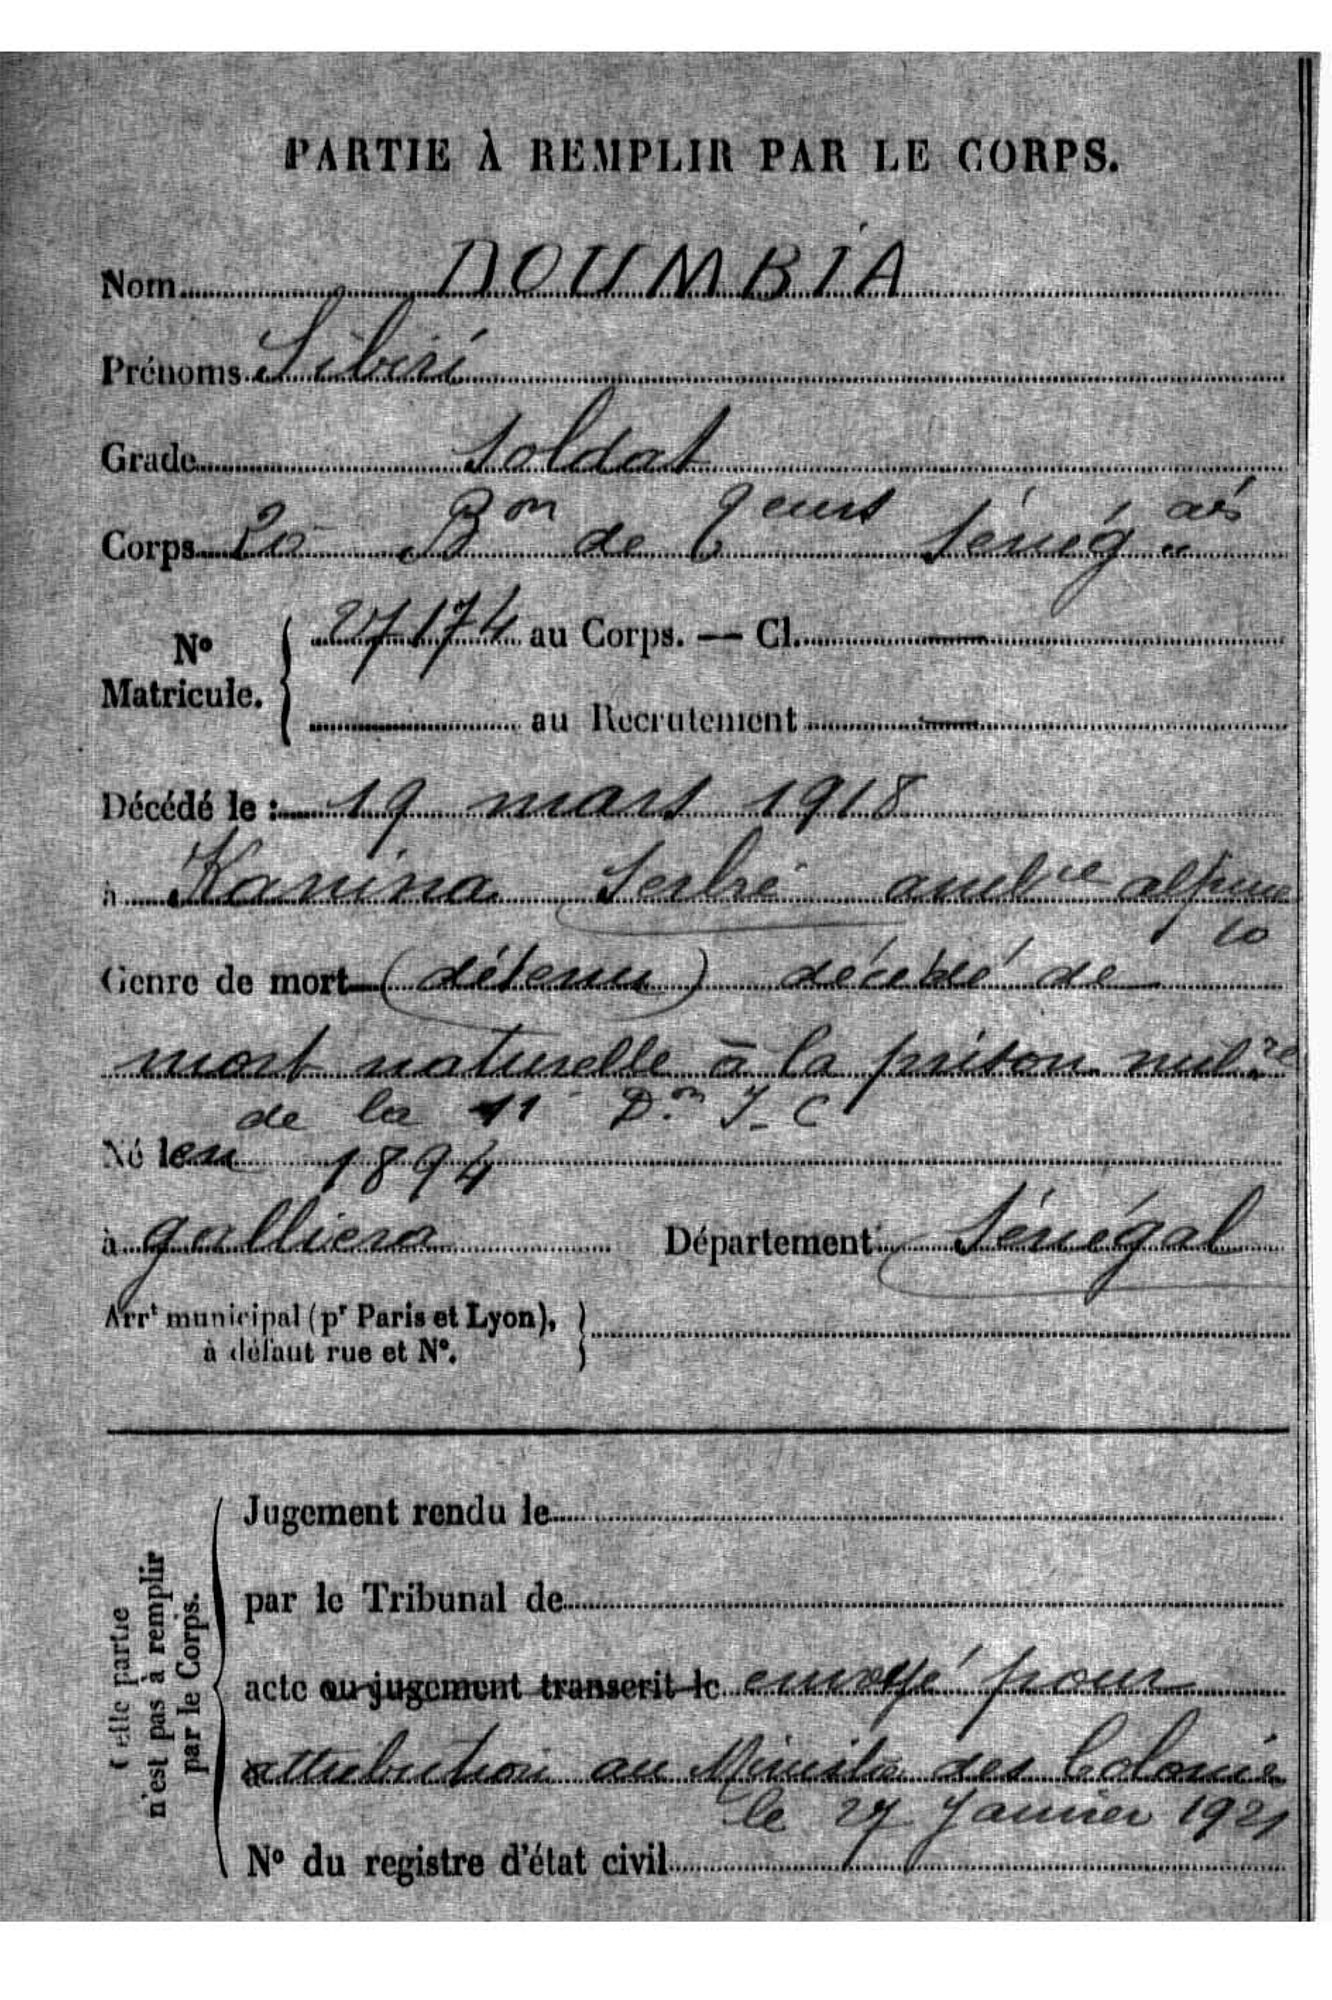 PARTIE À REMPLIR PAR LE CORPS.
Nom DOUMBIA
Prénoms Sibiri
Grade soldat
Corps 20 Bon de Teurs Sénég ais
No Matricule. 27174 au Corps. — Cl. —
au Recrutement —
Décédé le : 19 mars 1918
à Kanina Serbie ambce alpine
10
Genre de mort (détenu) décédé de
mort naturelle à la prison milre
de la 11 Don I. C
Né len 1894
à galliera Département Sénégal
Arrt municipal (pr Paris et Lyon),
à défaut rue et No.
Cette partie
n'est pas à remplir
par le Corps.
Jugement rendu le
par le Tribunal de
acte ou jugement transcrit le envoyé pour
attribution au Ministre des Colonies
le 27 Janvier 1921
No du registre d'état civil